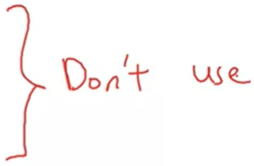 Don't use